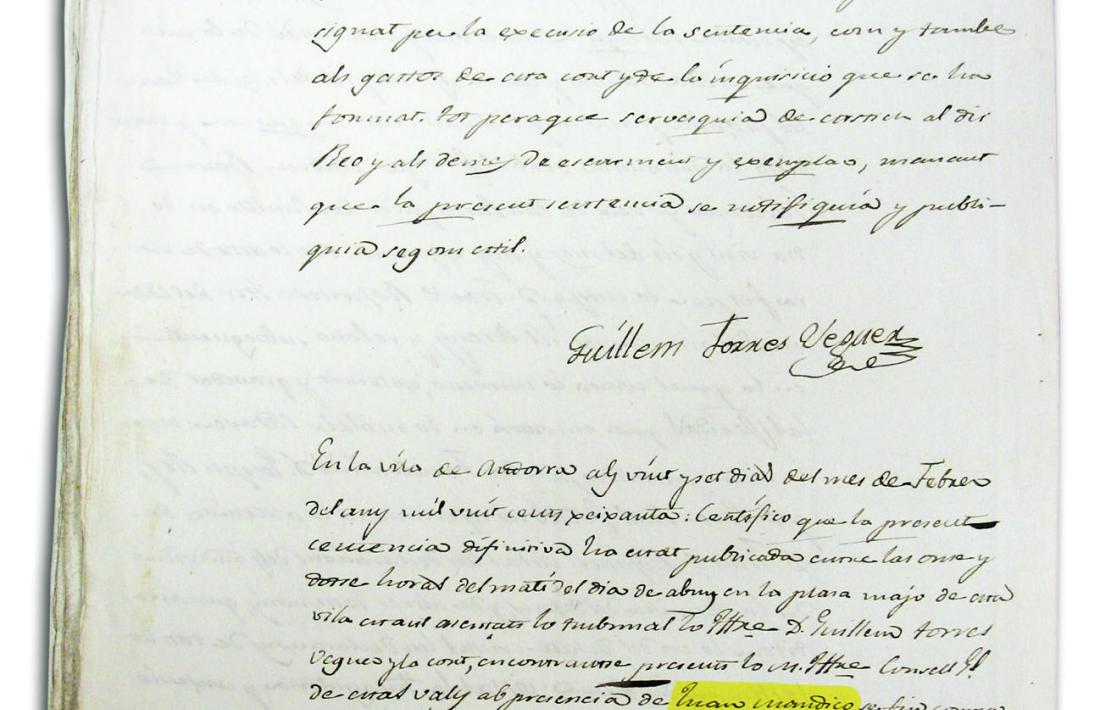 signat per la execusio de la sentencia, com y tambe
als gastos de esta cort y de la inquisicio que se ha
format. tot peraque servesquia de castich al dit
Reo y als demes de escarmen y exemplao, manant
que la present sentencia se notifiquia y publi-
quia segons estil.
Guillem Torres Veguer
En la vila de Andorra als vint y set dias del mes de Febrer
del any mil vuit cents xeixanta: Centifico que la present
cencencia difinitiva ha estat publicada entre las onse y
dotse horas del mati del dia de abuy en la plasa majo de esta
vila estant asentats lo tribunal lo Iltre D. Guillem torres
Veguer y la cort, encontranse presents lo M. Iltre Consell Gl.
de estas valls ab presencia de Juan Mandico